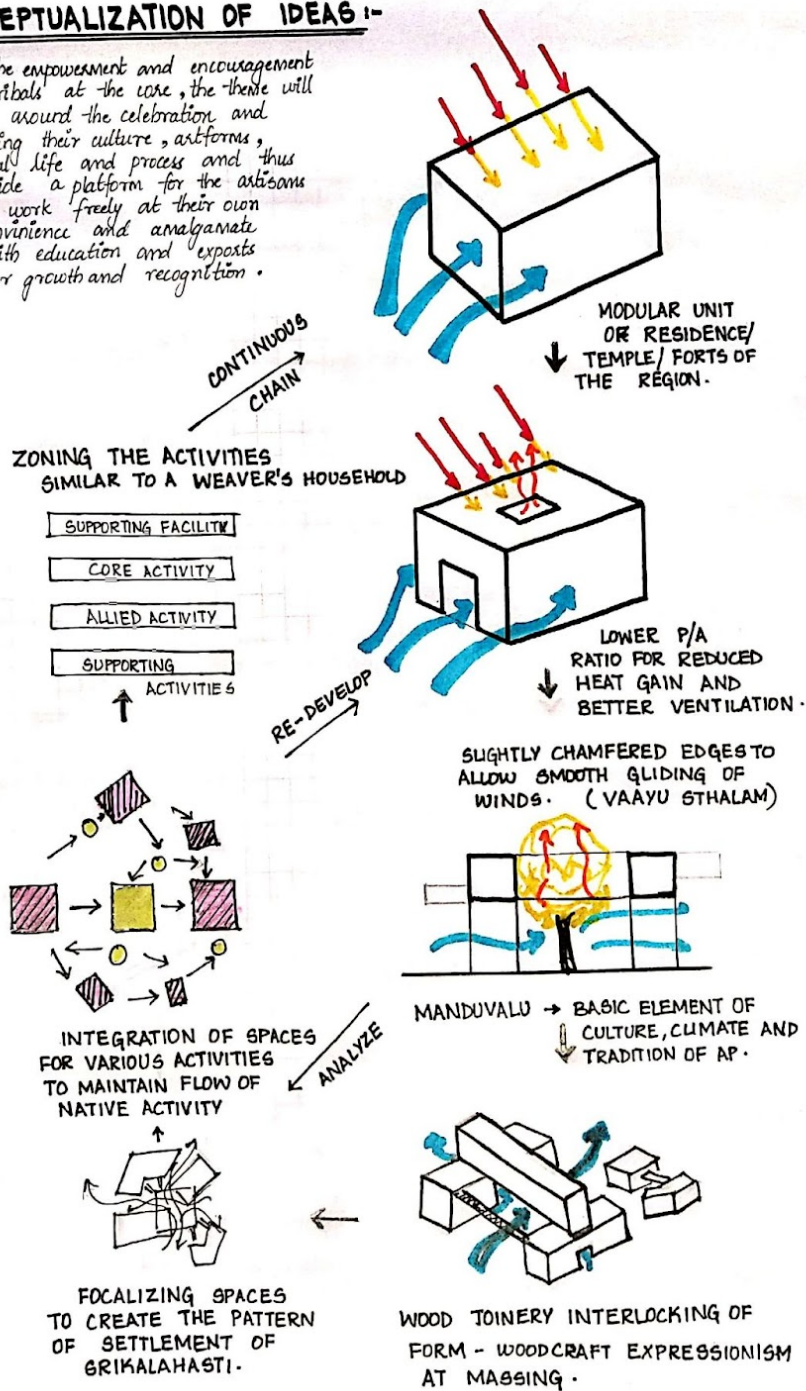 EPTUALIZATION OF IDEAS :-
he empowerment and encouragement
ribals at the core, the theme will
around the celebration and
ing their culture, artforms,
al life and process and thus
ide a platform for the artisans
work freely at their own
vinience and amalgamate
ith education and exports
r growth and recognition.
MODULAR UNIT
OR RESIDENCE/
TEMPLE/FORTS OF
THE REGION.
CONTINUOUS
CHAIN
ZONING THE ACTIVITIES
SIMILAR TO A WEAVER'S HOUSEHOLD
SUPPORTING FACILITY
CORE ACTIVITY
ALLIED ACTIVITY
SUPPORTING
ACTIVITIES
LOWER P/A
RATIO FOR REDUCED
HEAT GAIN AND
BETTER VENTILATION.
RE-DEVELOP
SLIGHTLY CHAMFERED EDGES TO
ALLOW SMOOTH GLIDING OF
WINDS. (VAAYU STHALAM)
MANDUVALU → BASIC ELEMENT OF
CULTURE, CLIMATE AND
TRADITION OF AP.
ANALYZE
INTEGRATION OF SPACES
FOR VARIOUS ACTIVITIES
TO MAINTAIN FLOW OF
NATIVE ACTIVITY
FOCALIZING SPACES
TO CREATE THE PATTERN
OF SETTLEMENT OF
SRIKALAHASTI.
WOOD JOINERY INTERLOCKING OF
FORM - WOODCRAFT EXPRESSIONISM
AT MASSING.